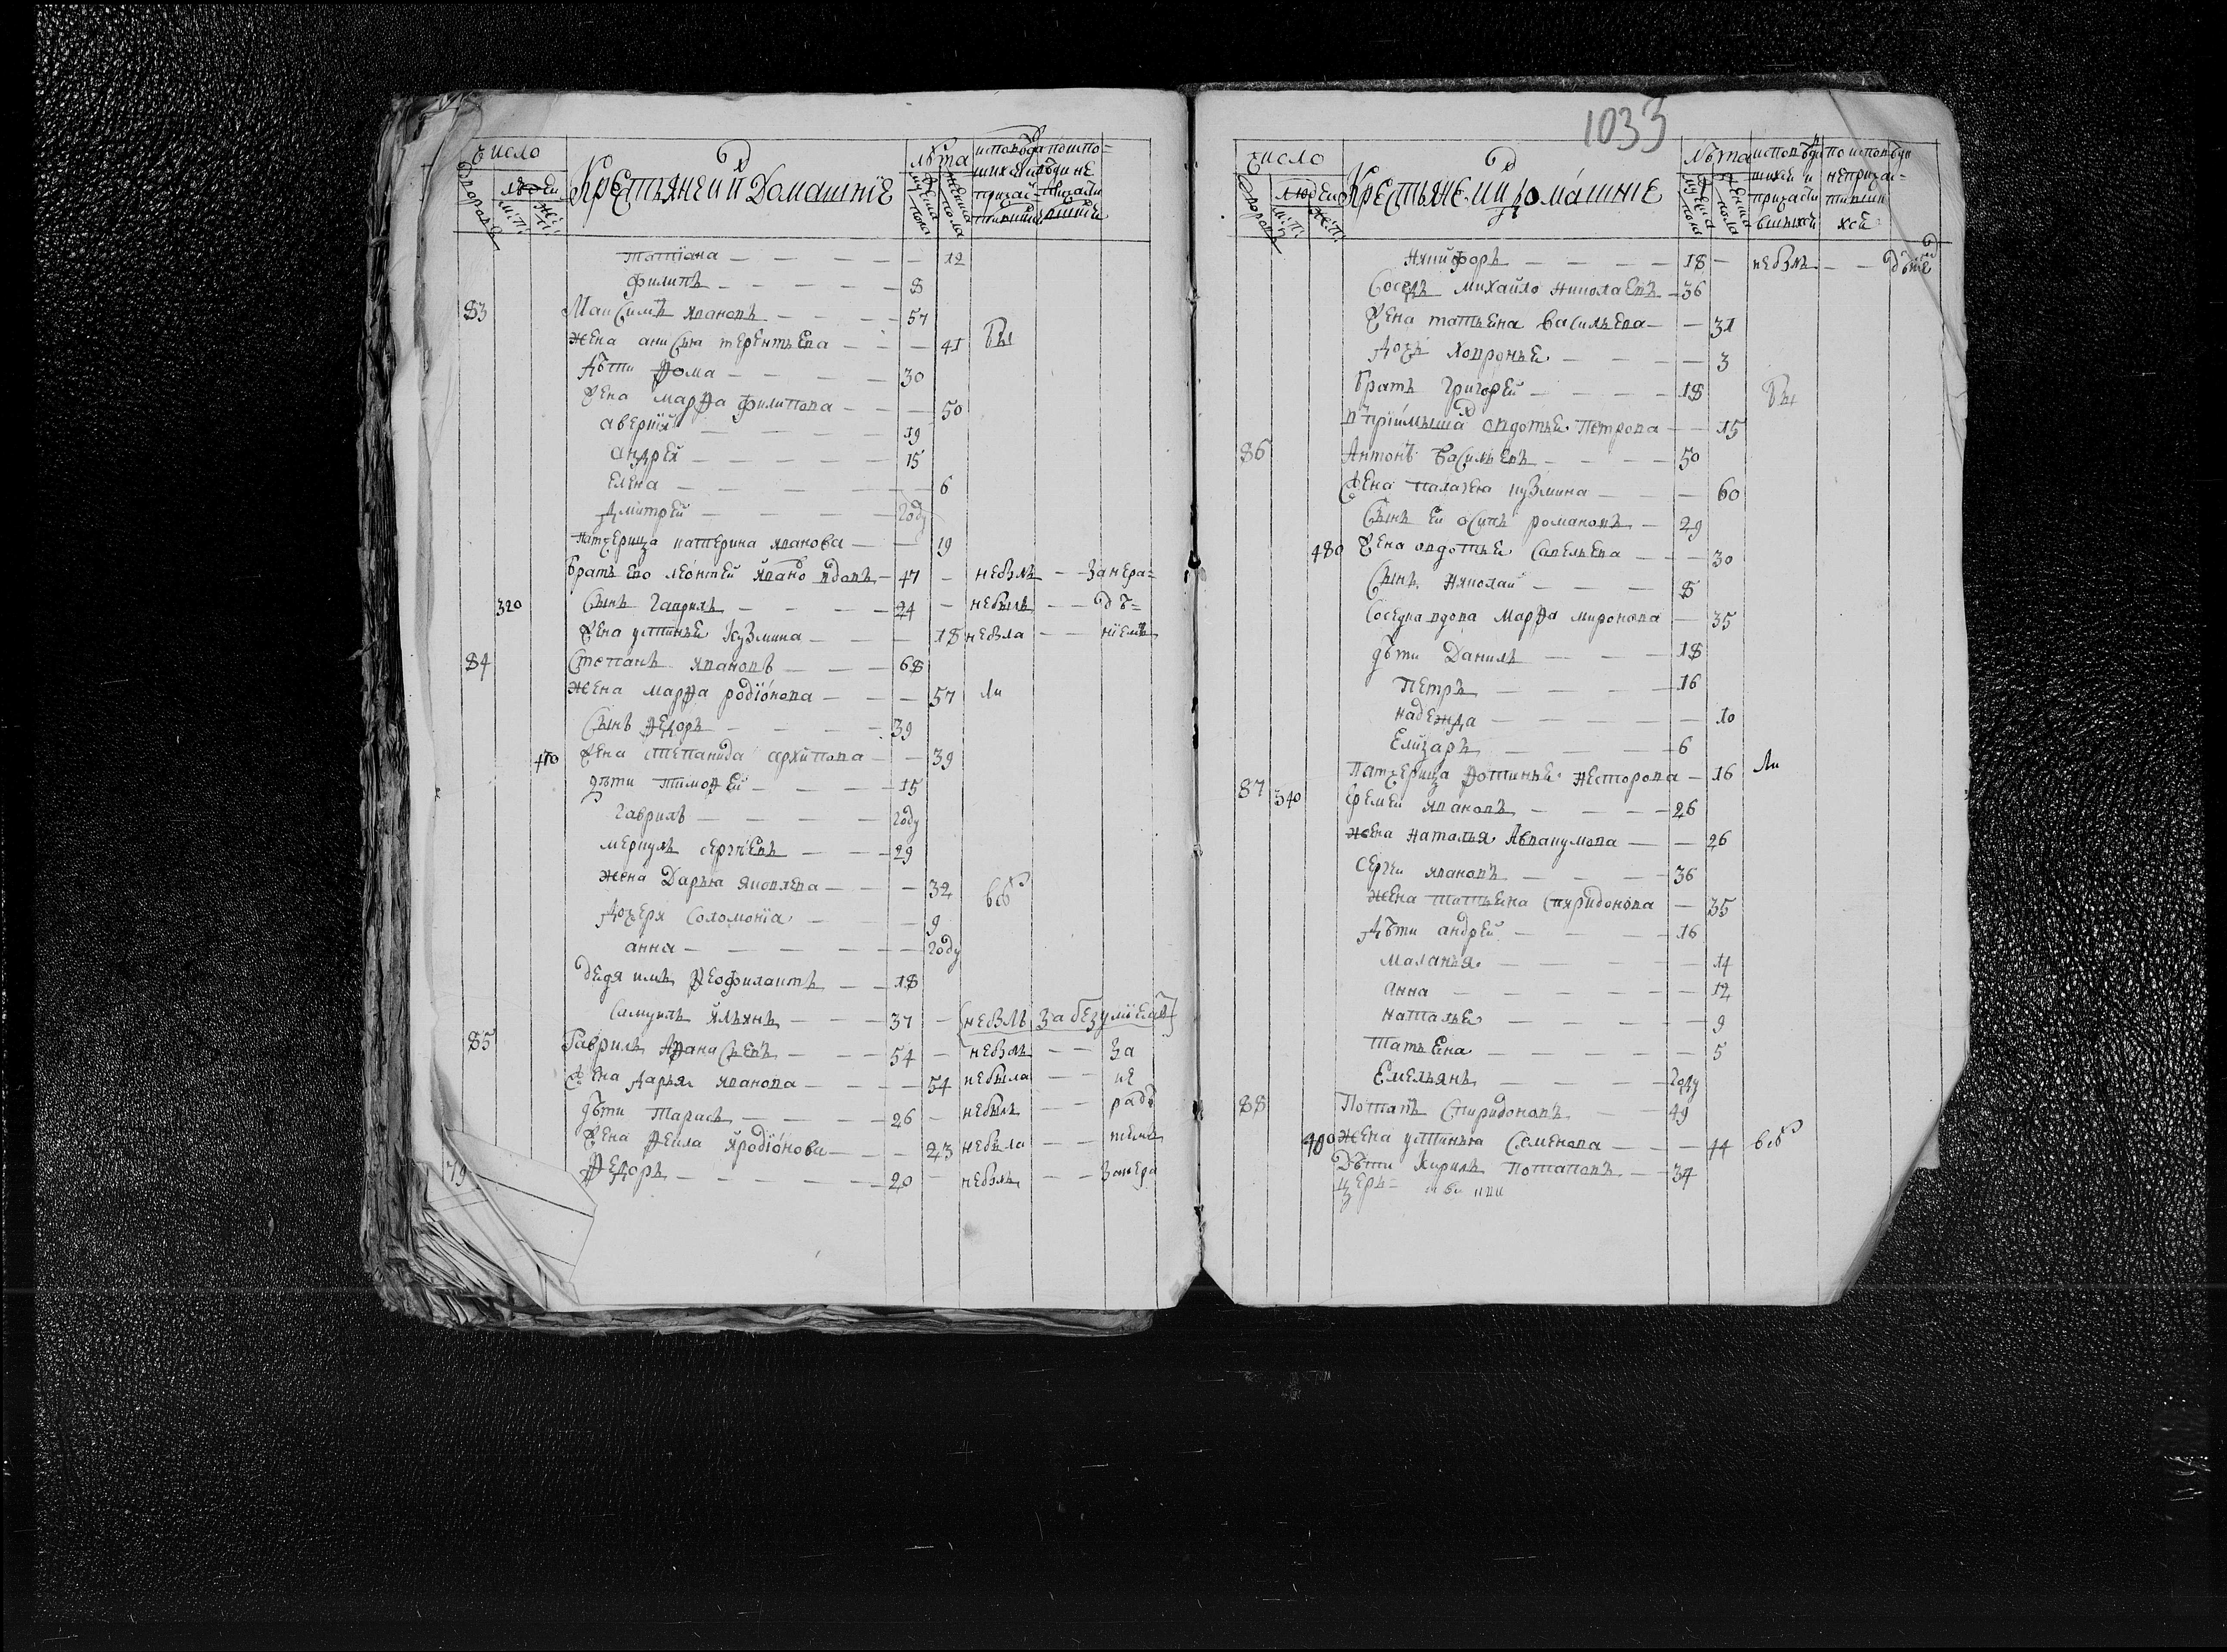 число
дворовъ
людей
м: п:
ж: п:
Крестьяне и и домашнїе
лѣта
мужеска пола
женска пола
татїана — 12
филипъ — 8
83 Маѯимъ ивановъ — 57
жена анисья терентьева — 41 бы
дѣти Ѳома — 30
жена марѲа филипова — 50
аверкїй — 19
андрей — 15
елена — 6
дмитрей — году
патчерица катерина иванова — 19
братъ ево леонтей ивано вдовъ — 47 — небылъ — За нера=
320 сынъ гаврилъ — 24 — небылъ — дѣ=
жена устинья кузмина — 18 небыла — нїемъ
84 Степанъ ивановъ — 68
жена марѲа родїонова — 57 ли
сынъ Ѳедоръ — 39
470 жена степанида архипова — 39
дѣти тимоѲей — 15
гаврилъ — году
меркулъ сергѣевъ — 29
жена Дарья яковлева — 32 всѣ
дочеря соломонїа — 9
анна — году
дедя имъ Ѳеофилактъ — 18
самуилъ ильинъ — 37 — небылъ за безумїемъ
85 Гаврилъ АѲанасьевъ — 54 — небылъ — за
жена дарья иванова — 54 небыла — не
дѣти тарасъ — 26 — небылъ — радѣ
жена Ѳекла иродїонова — 23 небыла — нїемъ
Ѳедоръ — 20 — небылъ — Занера
79
1033
число
дворовъ
людей
м: п:
ж: п:
Крестьяне и и домашнїе
лѣта
мужеска пола
женска пола
никифоръ — 18 — небылъ — дѣнїе
Соседъ михайло николаевъ — 36
жена татьяна васильева — 31
дочь ховронья — 3
братъ григорей — 18 бы
прїимыша овдотья петрова — 15
86 Антонъ Васильевъ — 50
жена палагея кузмина — 60
сынъ ей осипъ романовъ — 29
480 жена овдотья савельева — 30
сынъ николай — 8
соседка вдова марѲа миронова — 35
дѣти Данилъ — 18
петръ — 16
надежда — 10
елизаръ — 6
патчерица Ѳотинья несторова — 16 ли
87 340 еремей ивановъ — 26
жена наталья авакумова — 26
сергей ивановъ — 36
жена татьяна спиридонова — 35
дѣти андрей — 16
маланья — 14
анна — 12
наталья — 9
татьяна — 5
емельянъ — году
88 Потапъ спиридоновъ — 49
490 жена устинья семенова — 44 всѣ
дѣти кирилъ потаповъ — 34
церк=